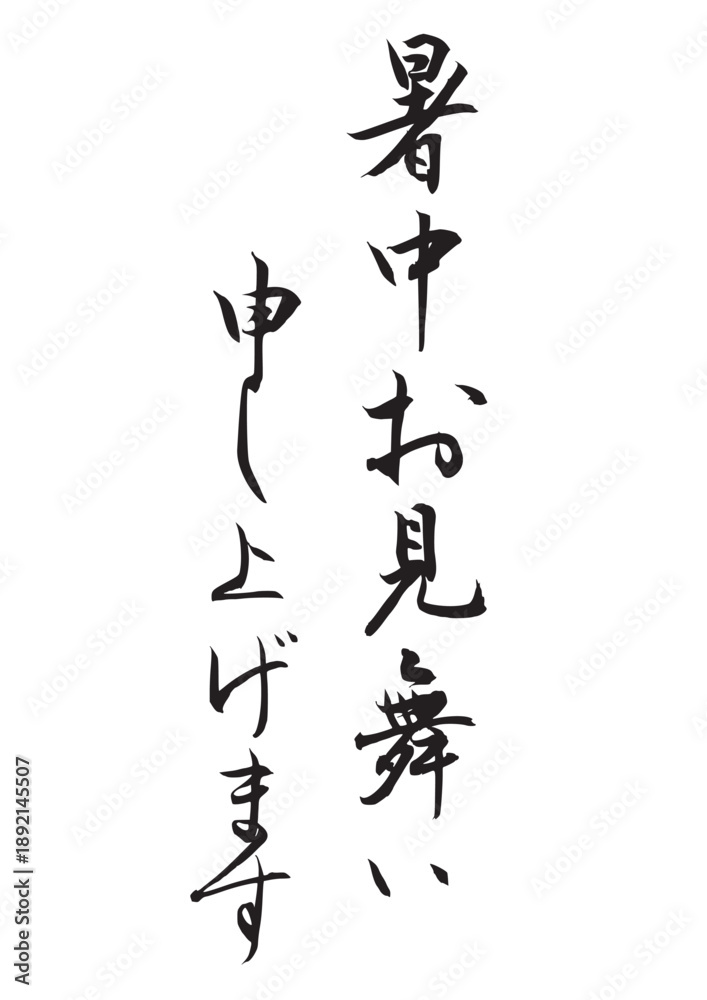 暑中お見舞い
申し上げます
Adobe Stock | #1892145507